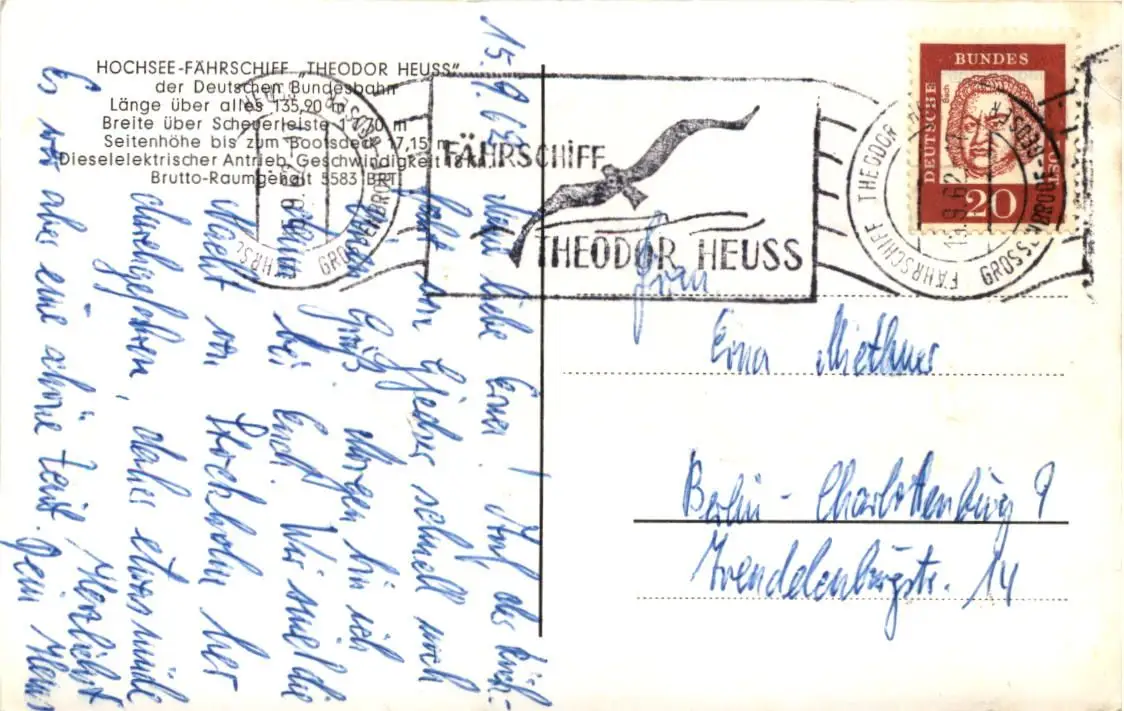 HOCHSEE-FÄHRSCHIFF „THEODOR HEUSS"
der Deutschen Bundesbahn
Länge über alles 135,90 m
Breite über Scheuerleiste 17,70 m
Seitenhöhe bis zum Bootsdeck 17,15 m
Dieselelektrischer Antrieb, Geschwindigkeit 18 kn
Brutto-Raumgehalt 5583 BRT
FÄHRSCHIFF
THEODOR HEUSS
FÄHRSCHIFF THEODOR HEUSS
GROSSENBRODE-GEDSER
15.9.62
DEUTSCHE
BUNDES
POST
Bach
20
15.9.62
Meine liebe Erna! Auf der Rück-
fahrt von Gjedser schnell noch
einen Gruß. Morgen bin ich
wieder bei Euch. Wir sind die
Nacht von Stockholm her
durchgefahren, daher etwas müde
Es war aber eine schöne Zeit. Herzlichst
Dein Heinz
Frau
Erna Miethner
Berlin-Charlottenburg 9
Trendelenburgstr. 14